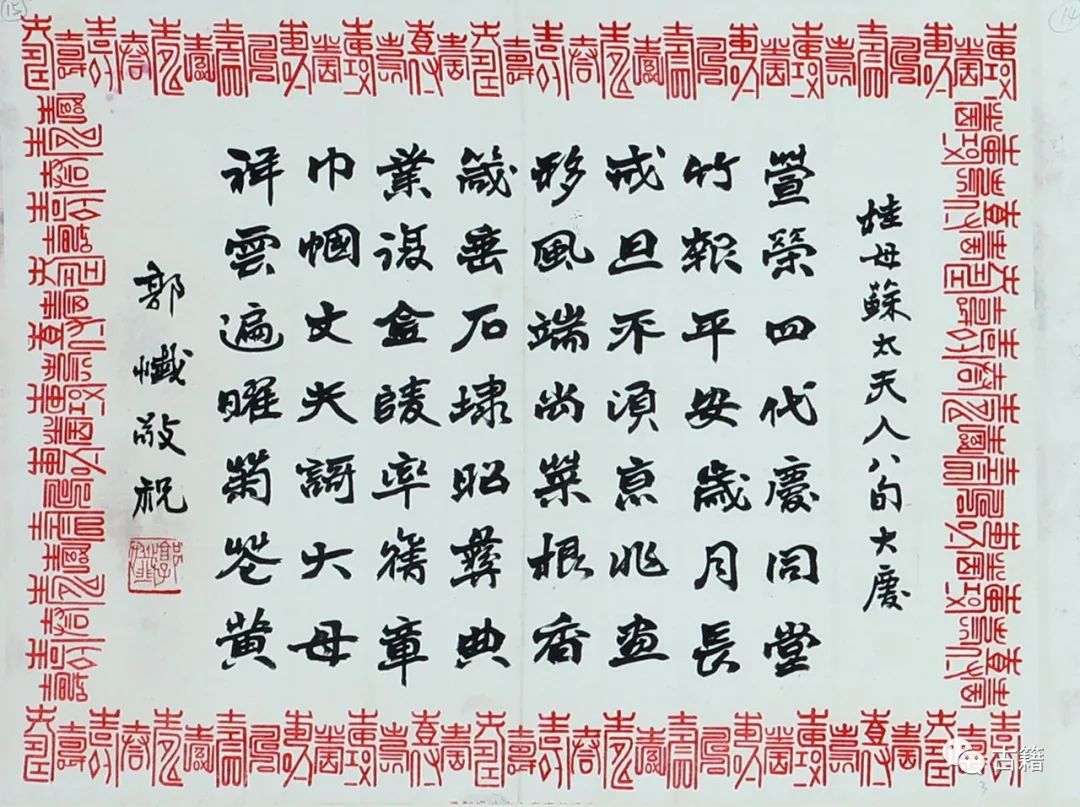 桂母蘇太夫人八旬大慶
萱榮四代慶同堂
竹報平安歲月長
戒旦不須京兆畫
移風端尚菜根香
箴垂石埭昭彝典
業復金陵率舊章
巾幗丈夫謌大母
祥雲遍曜菊花黃
郭懺敬祝
15
14
古籍